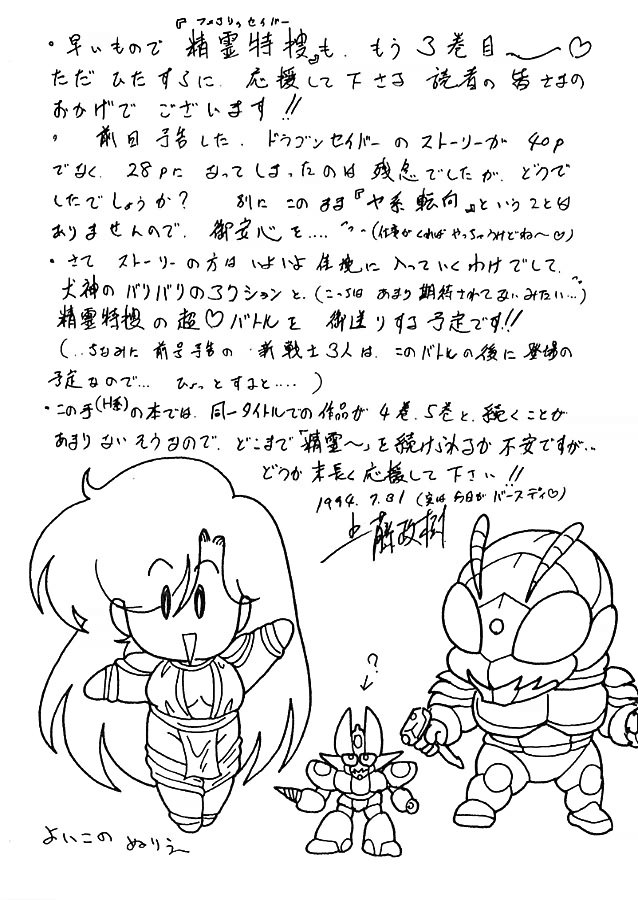 『フェアリィセイバー
・早いもので 精霊特捜』も、もう 3巻目〜〜♡
ただ ひたすらに、応援して下さる 読者の皆さまの
おかげで ございます!!
・ 前回 予告した、ドラゴンセイバーのストーリーが 40P
でなく、28Pに なってしまったのは 残念でしたが、どうで
したでしょうか? 別に このまま『ヤ系転向』ということは
ありませんので、御安心を.... (仕事がくればやっちゃうけどね〜♡)
・さて ストーリーの方は いよいよ 佳境に 入っていくわけでして、
犬神のバリバリのアクションと、(こっちは あまり 期待されてないみたい...)
精霊特捜の超♡バトルを 御送りする予定です!!
(..ちなみに 前号予告の 新戦士3人は、このバトルの後に登場の
予定なので... ひょっとすると.... )
・この手(H系)の本では、同一タイトルでの作品が 4巻、5巻と、続くことが
あまりないそうなので、どこまで「精霊〜」を続けられるか 不安ですが..
どうか 末長く応援して下さい!!
1994.7.31 (実は今日がバースディ♡)
政樹
?
よいこの ぬりえ